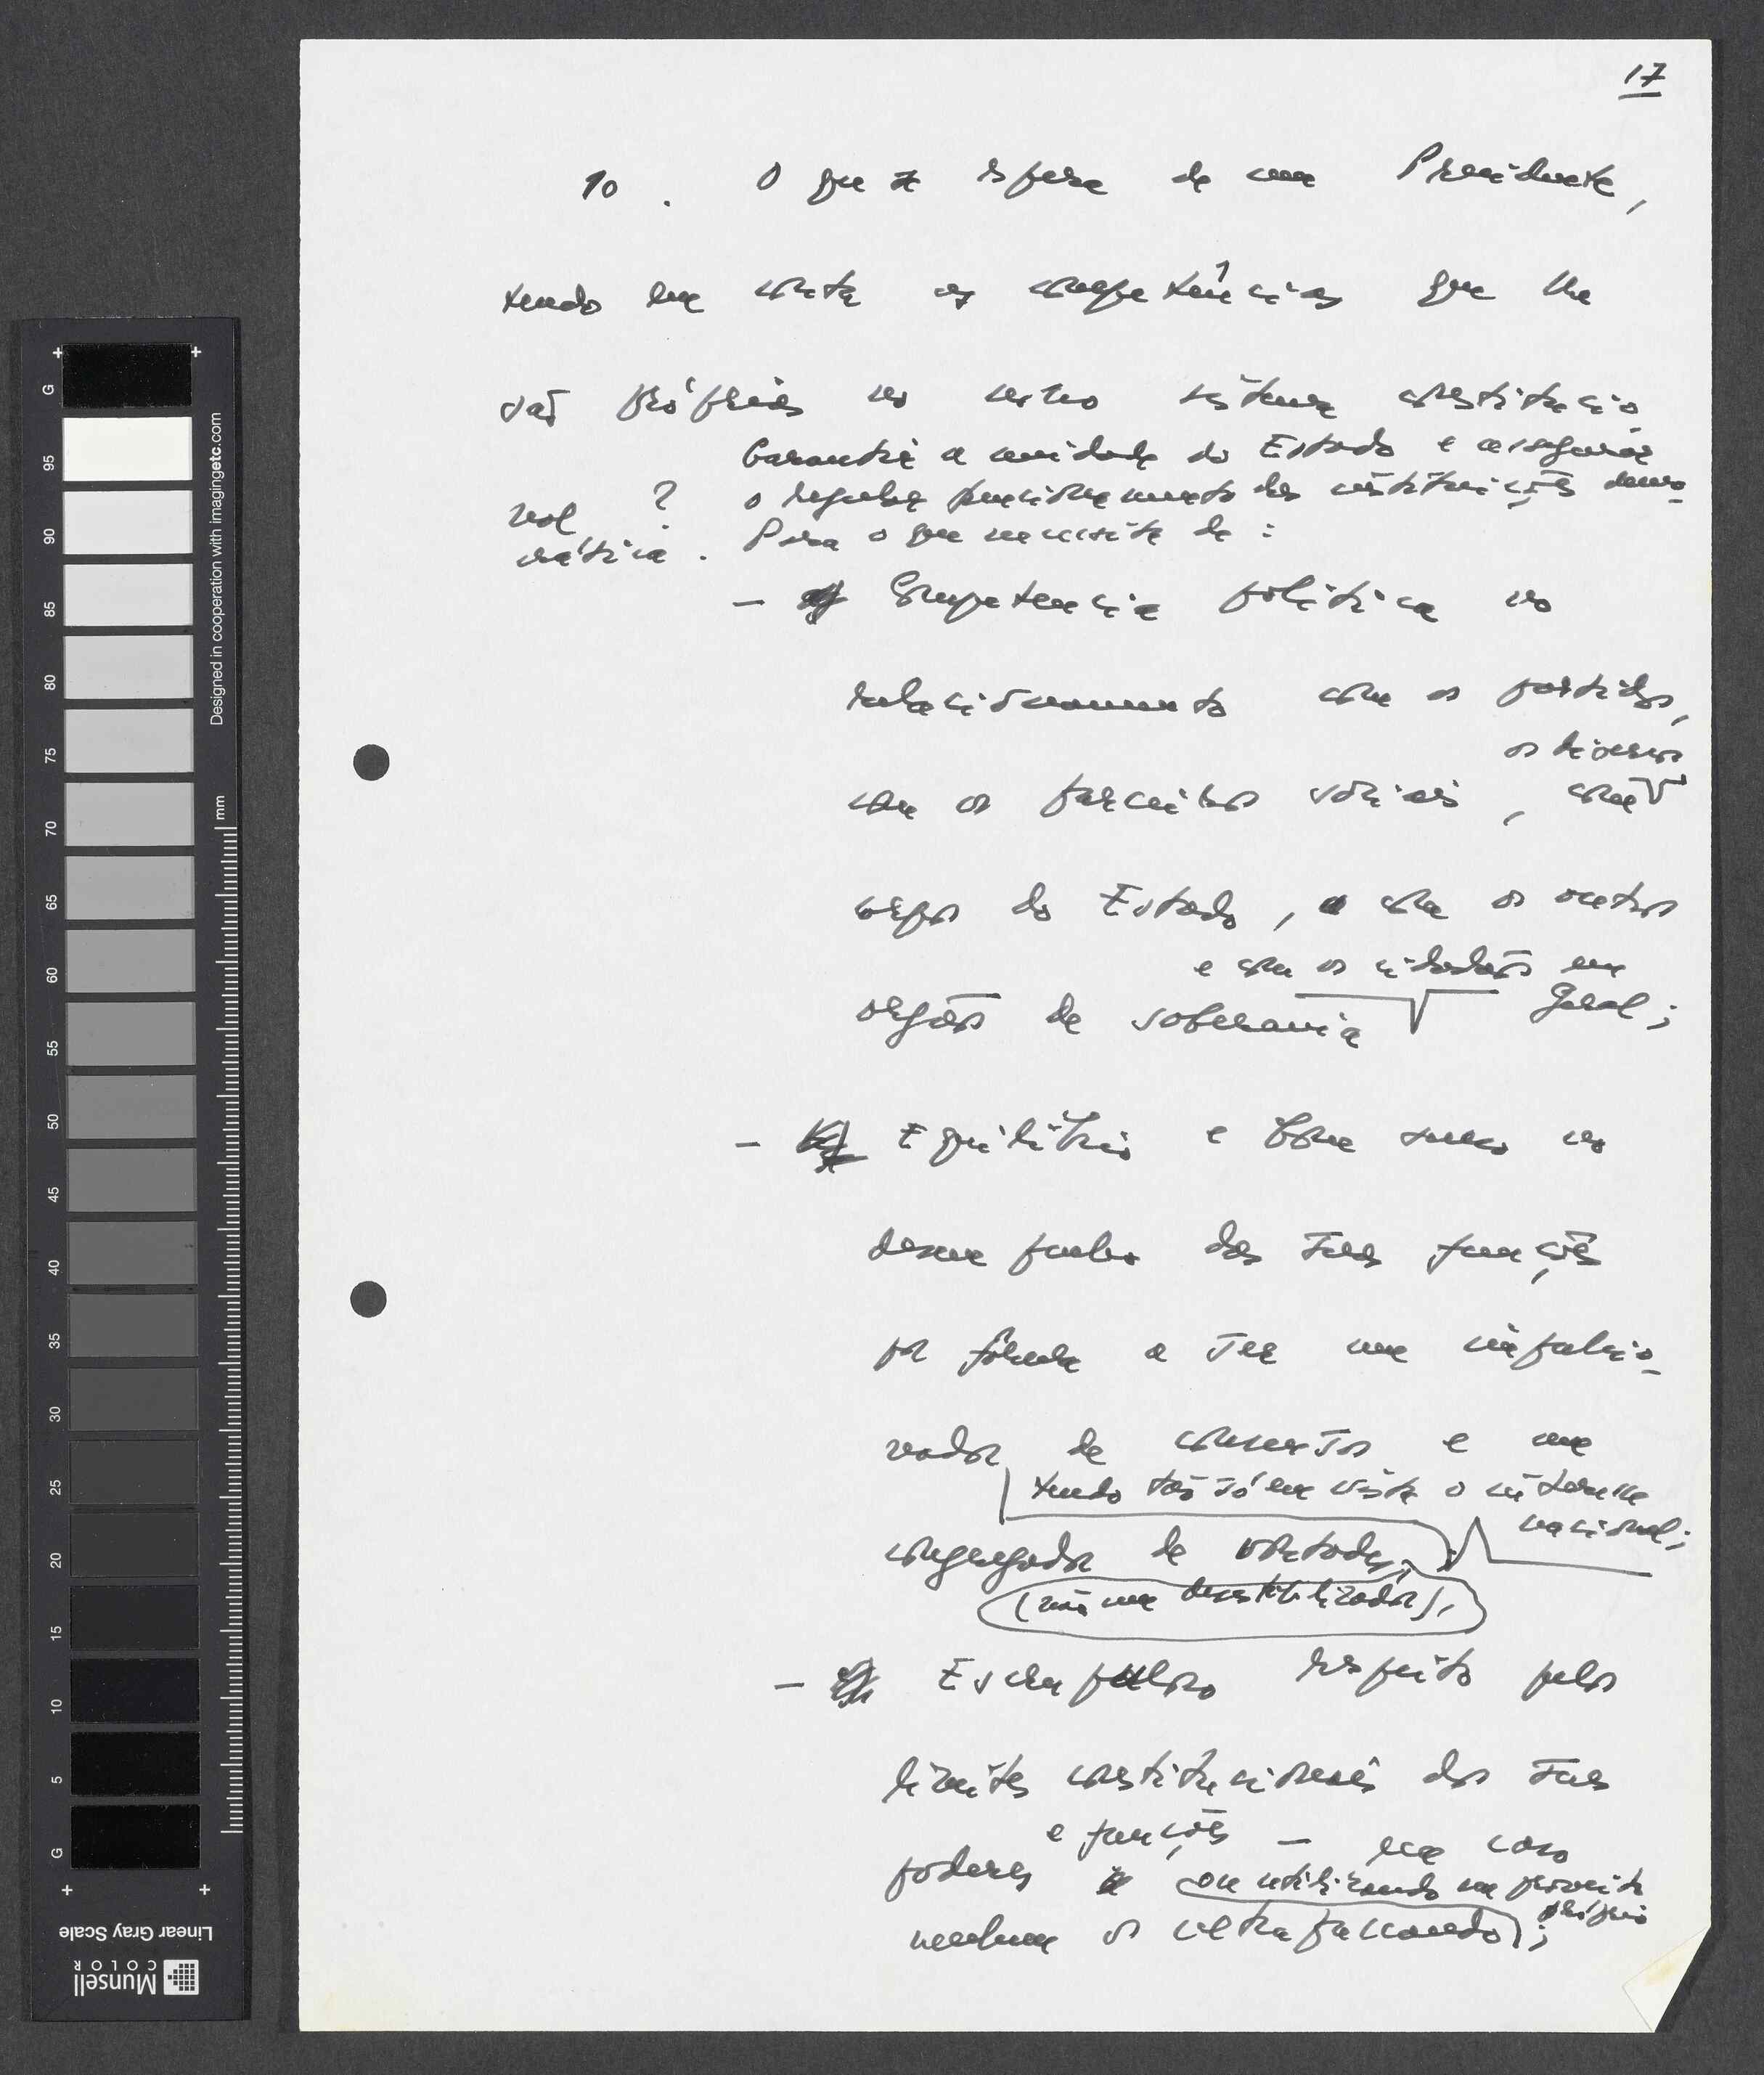 17
10. O que se espera de um Presidente,
tendo em conta as competências que lhe
são próprias no nosso sistema constitucio-
nal? Garantir a unidade do Estado e assegurar
o regular funcionamento das instituições demo-
cráticas. Para o que necessita de:
- Competencia politica no
relacionamento com os partidos,
com os parceiros sociais, com os diversos
corpos do Estado, com os outros
orgãos de soberania e com os cidadãos em
geral;
- Equilibrio e bom senso no
desempenho das suas funções
por forma a ser um impulsio-
nador de consensos e um
congregador de vontades, (não um desestabilizador),
tendo tão só em vista o interesse
nacional;
- Escrupuloso respeito pelos
limites constitucionais dos seus
poderes e funções - em caso
nenhum os ultrapassando ou utilizando em proveito
próprio;
G
95
90
85
80
75
70
65
60
55
50
45
40
35
30
25
20
15
10
5
G
mm
Designed in cooperation with imagingetc.com
Linear Gray Scale
Munsell
COLOR